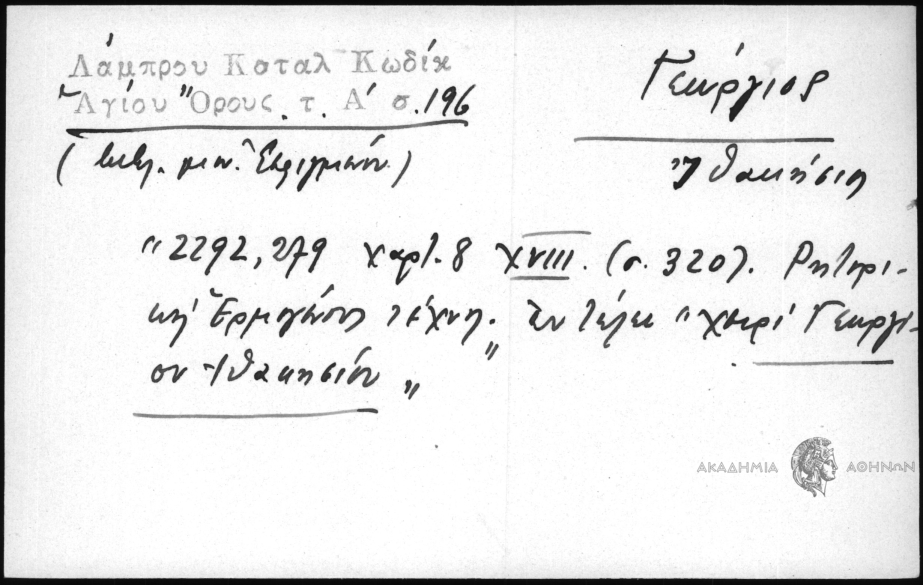 Λάμπρου Καταλ Κωδίκ
Ἁγίου Ὄρους τ. Α' σ. 196
Γεώργιος
(βιβλ. μον. Ἐσφιγμένου)
Ἰθακήσιος
"2292,279 χαρτ. 8 XVIII. (σ. 320). Ρητορι-
κὴ Ἑρμογένους τέχνη." Ἐν τέλει "χειρὶ Γεωργί-
ου Ἰθακησίου"
ΑΚΑΔΗΜΙΑ ΑΘΗΝΩΝ